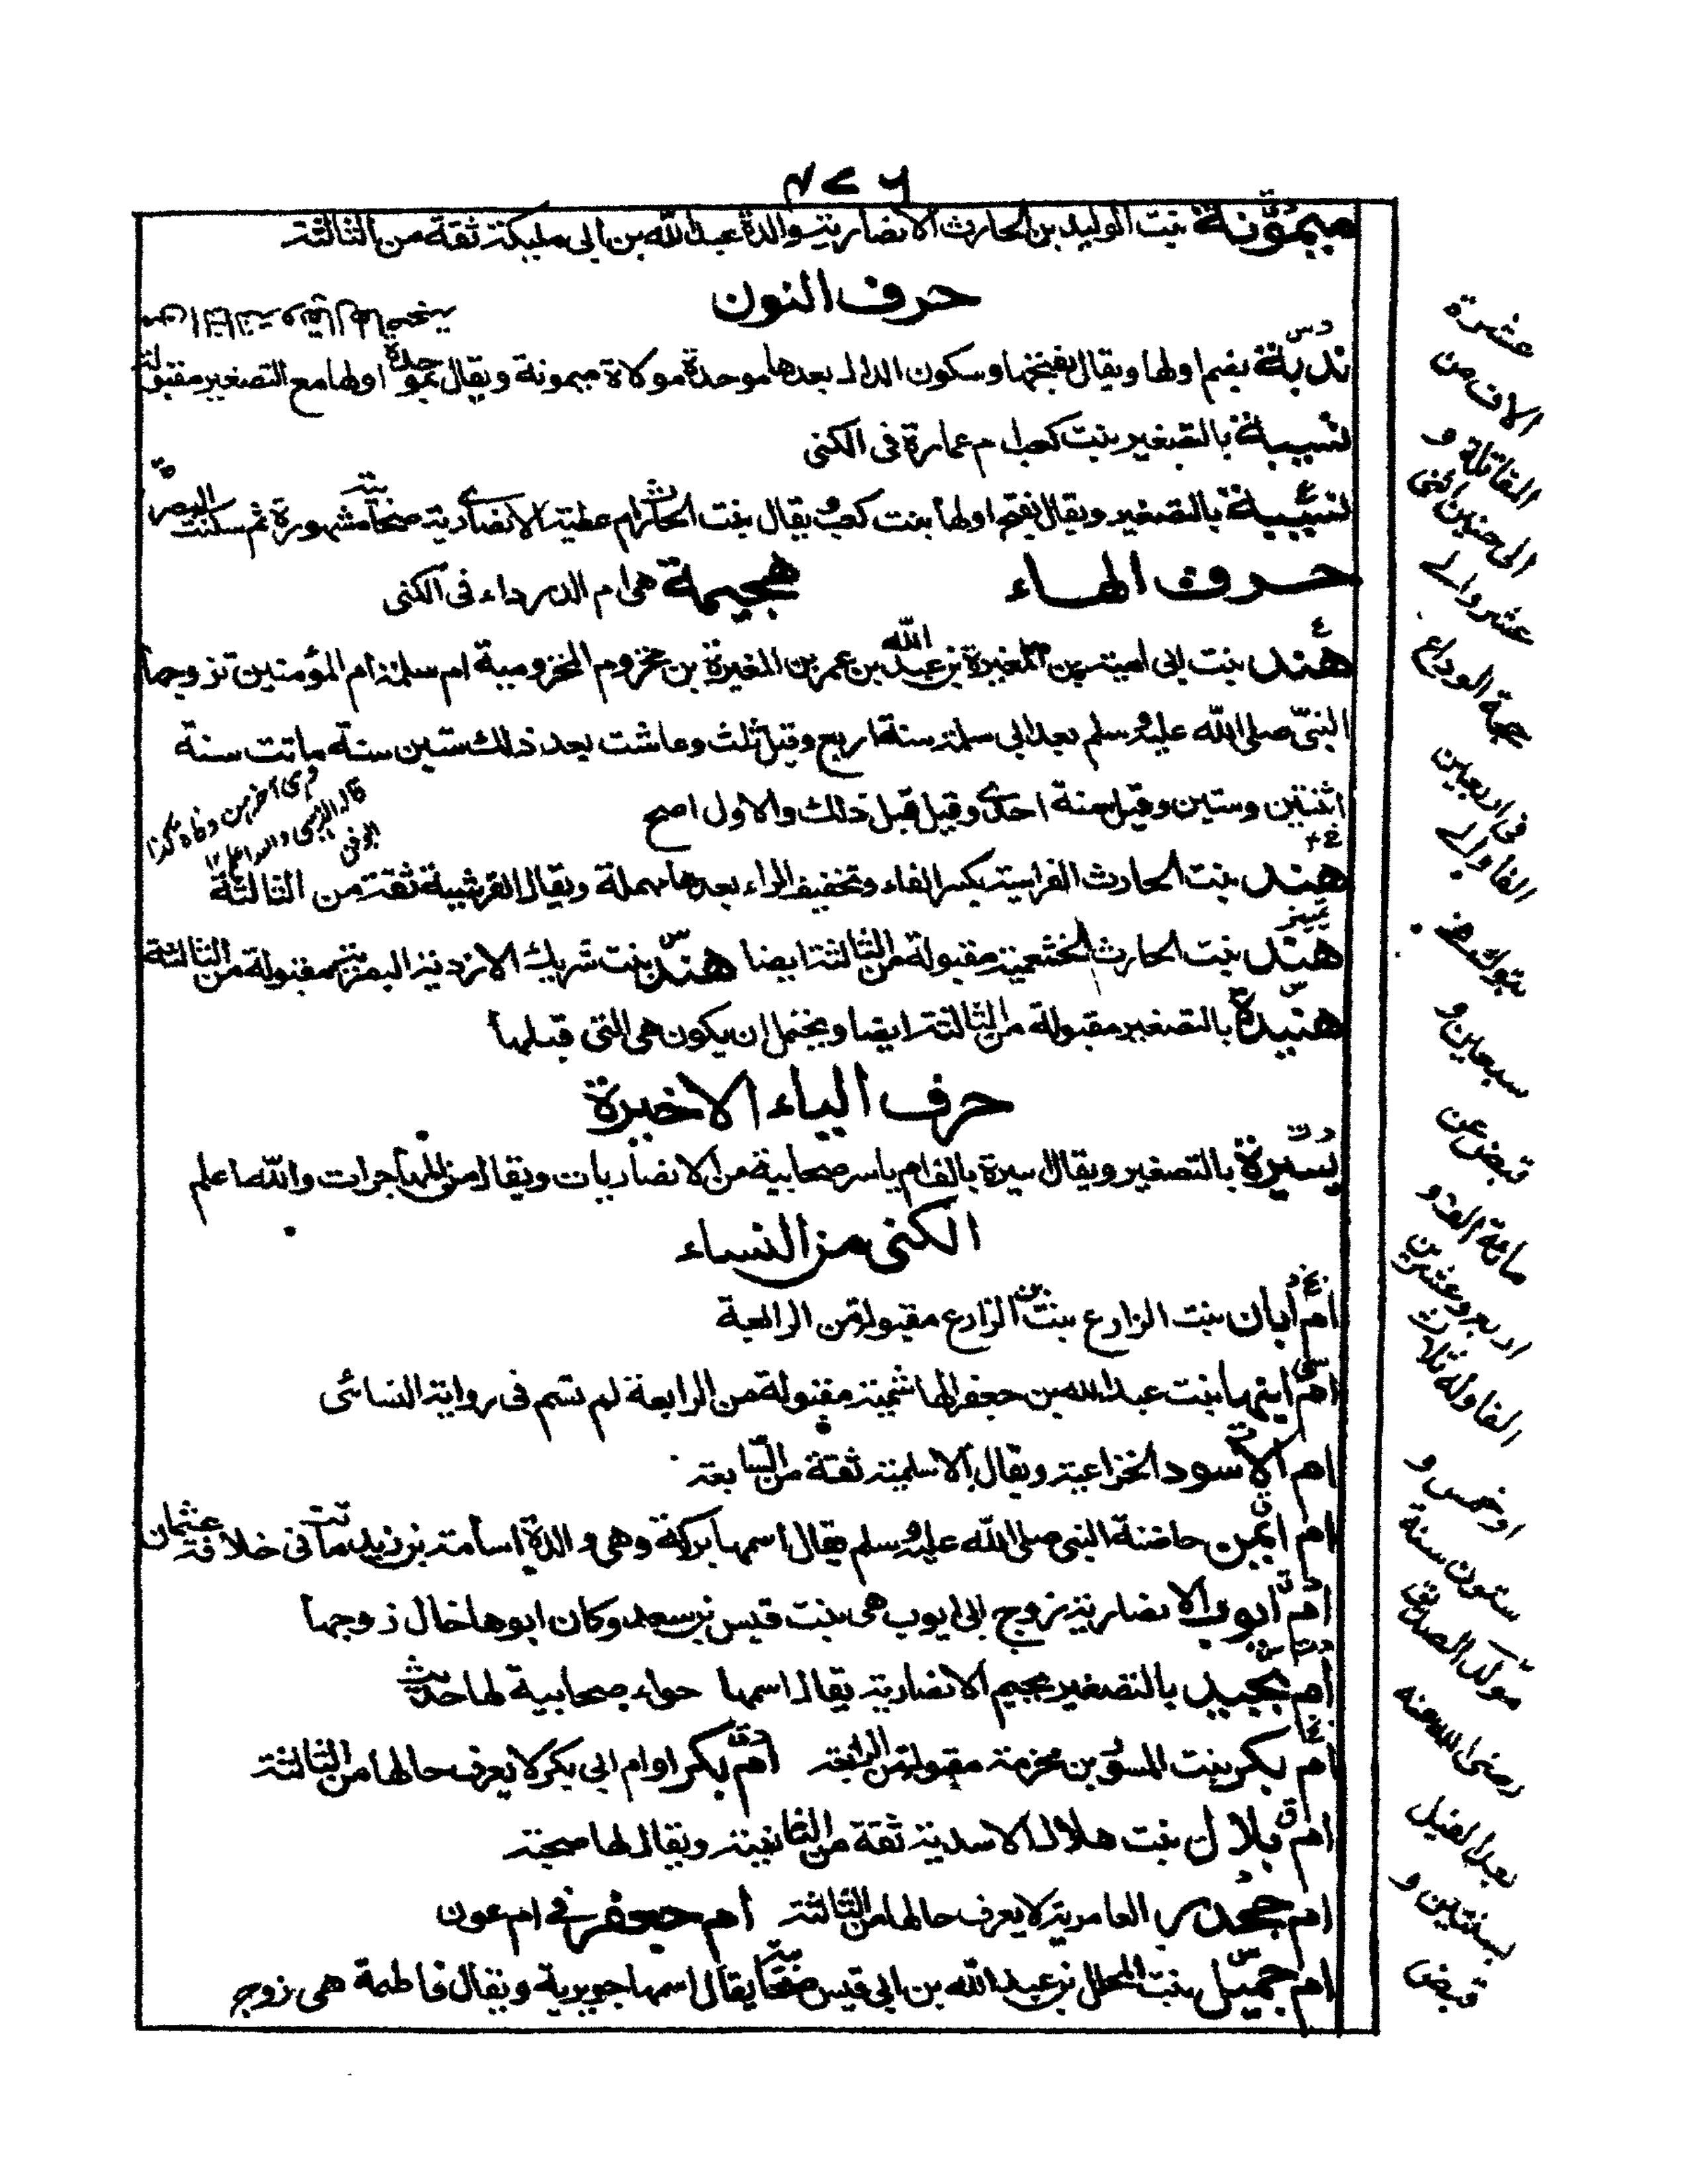 ميمونة بنت الوليد بن الحارث الانصارية والدة عبد الله بن ابى مليكة ثقة من الثالثة
حرف النون
ندبة بضم اولها ويقال بفتحها وسكون الدال بعدها موحدة مولاة ميمونة ويقال بموحدة اولها مع التصغير مقبولة
نسيبة بالتصغير بنت كعب ام عمارة فى الكنى
نسيبة بالتصغير ويقال بفتح اولها بنت كعب ويقال بنت الحارث ام عطية الانصارية صحابية مشهورة ثم سكنت البصرة
حرف الهاء هجيمة هى ام الدرداء فى الكنى
هند بنت ابى امية بن المغيرة بن عبد الله بن عمر بن المغيرة بن مخزوم المخزومية ام سلمة ام المؤمنين تزوجها
النبى صلى الله عليه وسلم بعد ابى سلمة سنة اربع وقيل ثلث وعاشت بعد ذلك ستين سنة ماتت سنة
اثنتين وستين وقيل سنة احدى وقيل قبل ذلك والاول اصح
هند بنت الحارث الفراسية بكسر الفاء وتخفيف الراء بعدها مهملة ويقال القرشية ثقة من الثالثة
هند بنت الحارث الخثعمية مقبولة من الثالثة ايضا هند بنت شريك الازدية البصرية مقبولة من الثالثة
هنيدة بالتصغير مقبولة من الثالثة ايضا ويحتمل ان يكون هى التى قبلها
حرف الياء الاخيرة
يسيرة بالتصغير ويقال اسيرة بالف ام ياسر صحابية من الانصاريات ويقال من المهاجرات والله اعلم
الكنى من النساء
ام ابان بنت الزارع بنت بن الزارع مقبولة من الرابعة
ام ابيها بنت عبد الله بن جعفر الهاشمية مقبولة من الرابعة لم تسم فى رواية النسائى
ام الاسود الخزاعية ويقال الاسلمية ثقة من السابعة
ام ايمن حاضنة النبى صلى الله عليه وسلم يقال اسمها بركة وهى والدة اسامة بن زيد ماتت فى خلافة عثمان
ام ايوب الانصارية زوج ابى ايوب هى بنت قيس بن سعد وكان ابوها خال زوجها
ام بجيد بالتصغير بجيم الانصارية يقال اسمها حواء صحابية لها حديث
ام بكر بنت المسور بن مخرمة مقبولة من الرابعة ام بكر او ام ابى بكر لا يعرف حالها من الثالثة
ام بلال بنت هلال الاسدية ثقة من الثانية ويقال لها صحبة
ام جحدر العامرية لا يعرف حالها من الثالثة ام جعفر فى ام عون
ام جميل بنت المحلل بن عبد الله بن ابى قيس صحابية يقال اسمها جويرية ويقال فاطمة هى زوج
عشرة
الاف من
المقاتلة و
الى حنين اثنى
عشر والى
حجة الوداع
فى اربعين
الفا والى
تبوك فى
سبعين و
قبض عن
مائة الف و
اربع وعشرين
الفا وله ثلاث
او خمس و
ستون سنة
مولد الصديق
رضى الله عنه
بعد الفيل
بسنتين و
قبض